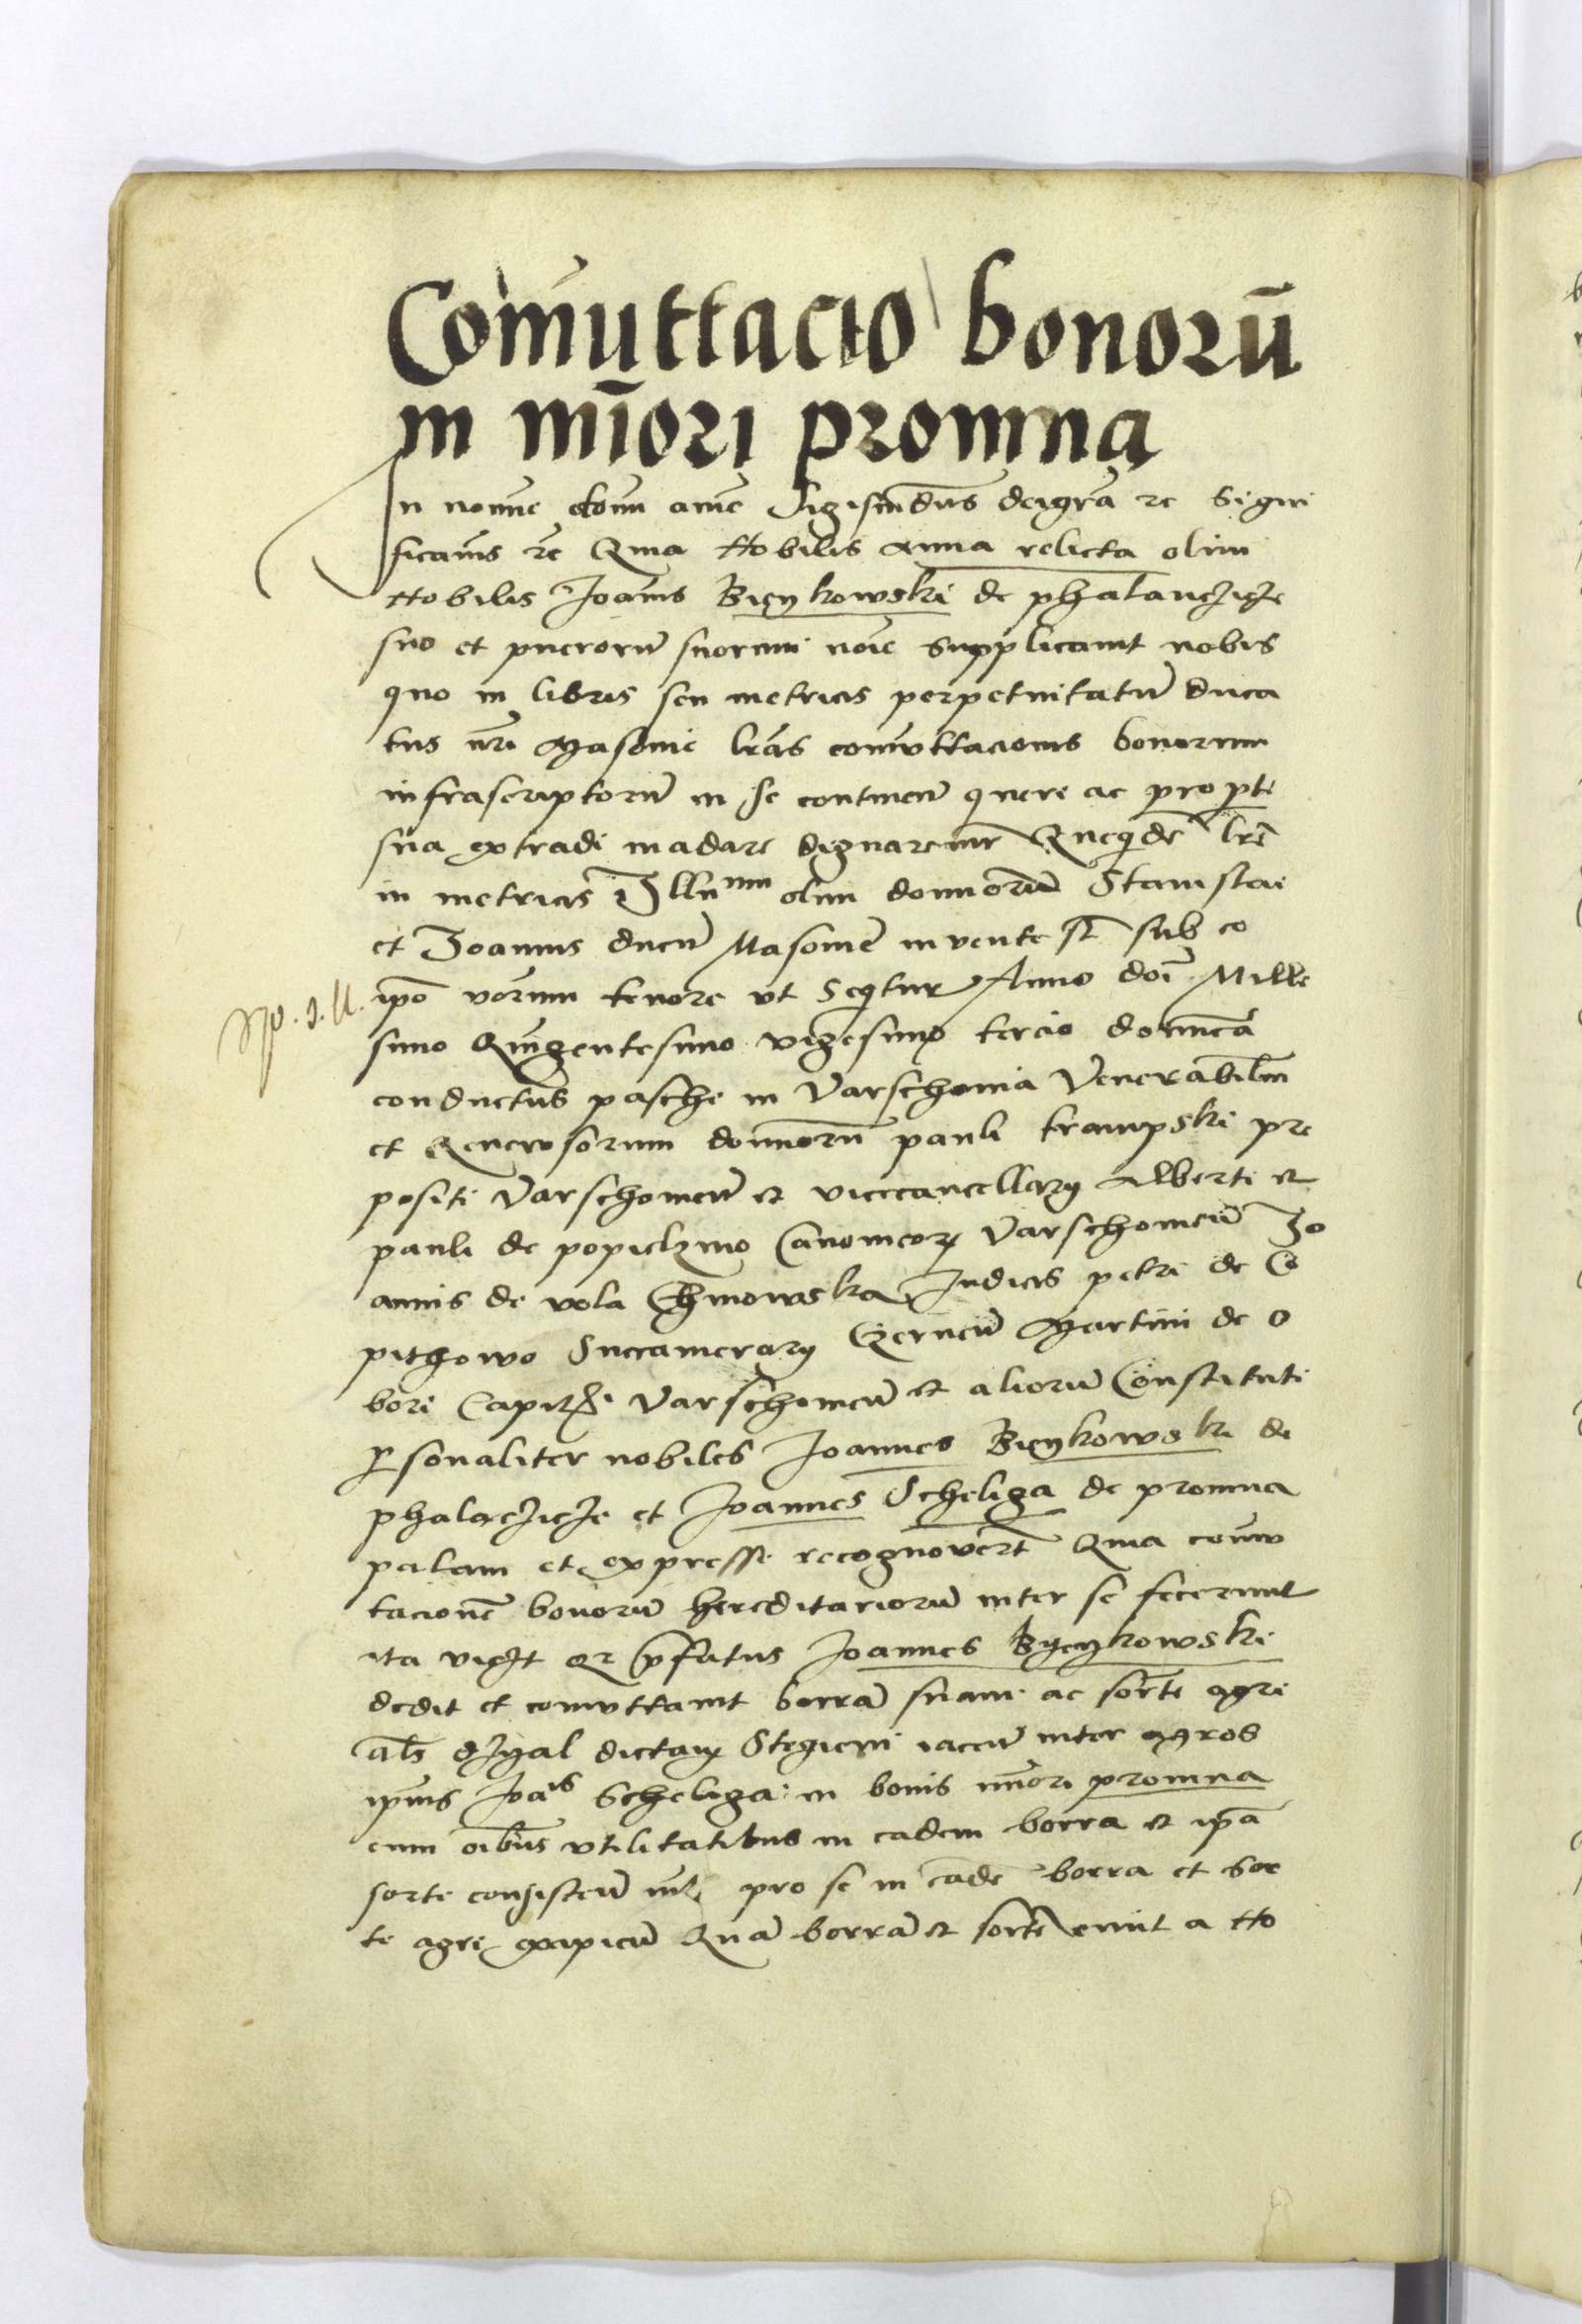 Com̄uttacio bonorū
in mīori promna
In nomīe dōnī amē Sigismūdus dei grā rc Signi
ficamus rc Quia Nobilis Anna relicta olim
Nobilis Joānis Bieykowski de phalanczicze
suo et puerorū suorum noīe supplicauit nobis
quo in libris seu metricis perpetuitatū duca
tus nrī Masouie lrās comuttacionis bonorum
infrascriptorū in se continen̄ querere ac pro pte
sua extradi mādare dignaremur Queqdē lrē
in metricis Illūmm olim dominorū Stanislai
et Joannis ducū Masouie inuente sūt sub eo
ipō vorum tenore vt Seqitur Anno doī Mille
simo Quingentesimo vigesimo tercio dominica
conductus pasche in Varschouia Venerabiliū
et Generosorum dominorū pauli trampski pre
positi Varschouien̄ et vicecancellarÿ Alberti et
pauli de popielzino Canonicorꝝ Varschouien̄ Jo
annis de vola Chinowska Judicis petri de Co
pithowo Succamerarÿ Czernen̄ Martini de O
bori Capitꝫ Varschouien̄ et aliorū Constituti
psonaliter nobiles Joannes Bieykowski de
phalaczicze et Joannes Scheliga de promna
palam et expresse recognouerūt Quia comu
tacionē bonorū hereditariorū inter se fecerunt
ita viꝫt qꝫ pfatus Joannes Byeykowski
dedit et comuttauit borrā suam ac sortē agri
als dzyal dictam Stegieni iacen̄ inter agros
ipius Joāis Scheliga in bonis minori promna
cum oībus vtilitatibus in eadem borra et ipā
sorte consisten̄ nul pro se in eadē borra et sor
te agri excipien̄ Quā borrā et sortē emit a No